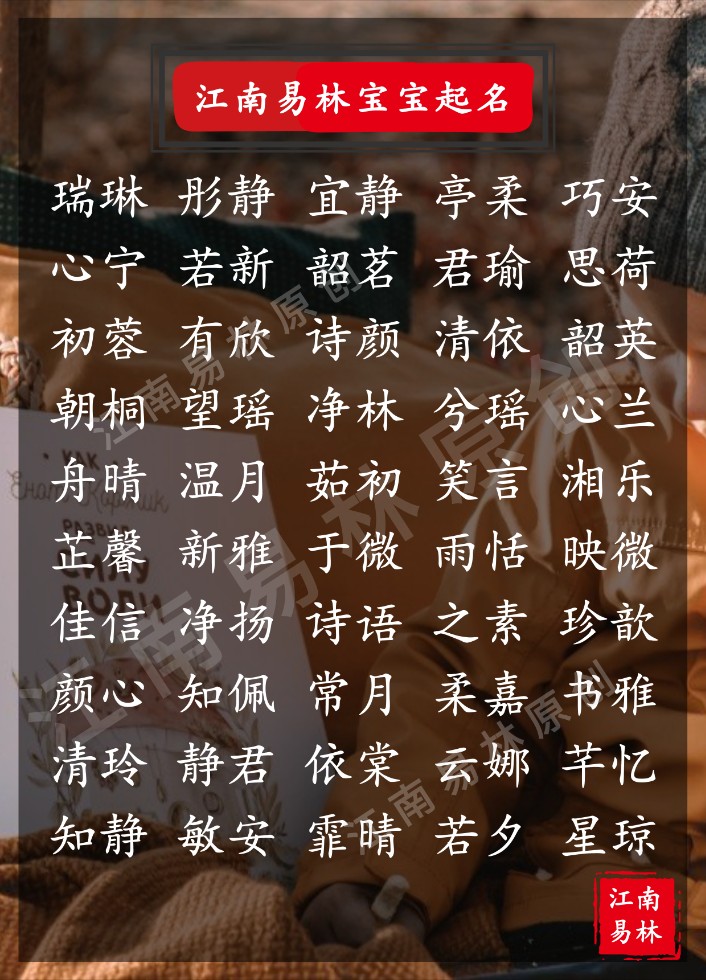 江南易林宝宝起名
瑞琳 彤静 宜静 亭柔 巧安
心宁 若新 韶茗 君瑜 思荷
初蓉 有欣 诗颜 清依 韶英
朝桐 望瑶 净林 兮瑶 心兰
舟晴 温月 茹初 笑言 湘乐
芷馨 新雅 于微 雨恬 映微
佳信 净扬 诗语 之素 珍歆
颜心 知佩 常月 柔嘉 书雅
清玲 静君 依棠 云娜 芊忆
知静 敏安 霏晴 若夕 星琼
江南易林原创
江南易林原创
江南易林原创
КАК
РАЗВИЛ
СИЛУ
ВОЛИ
江南
易林